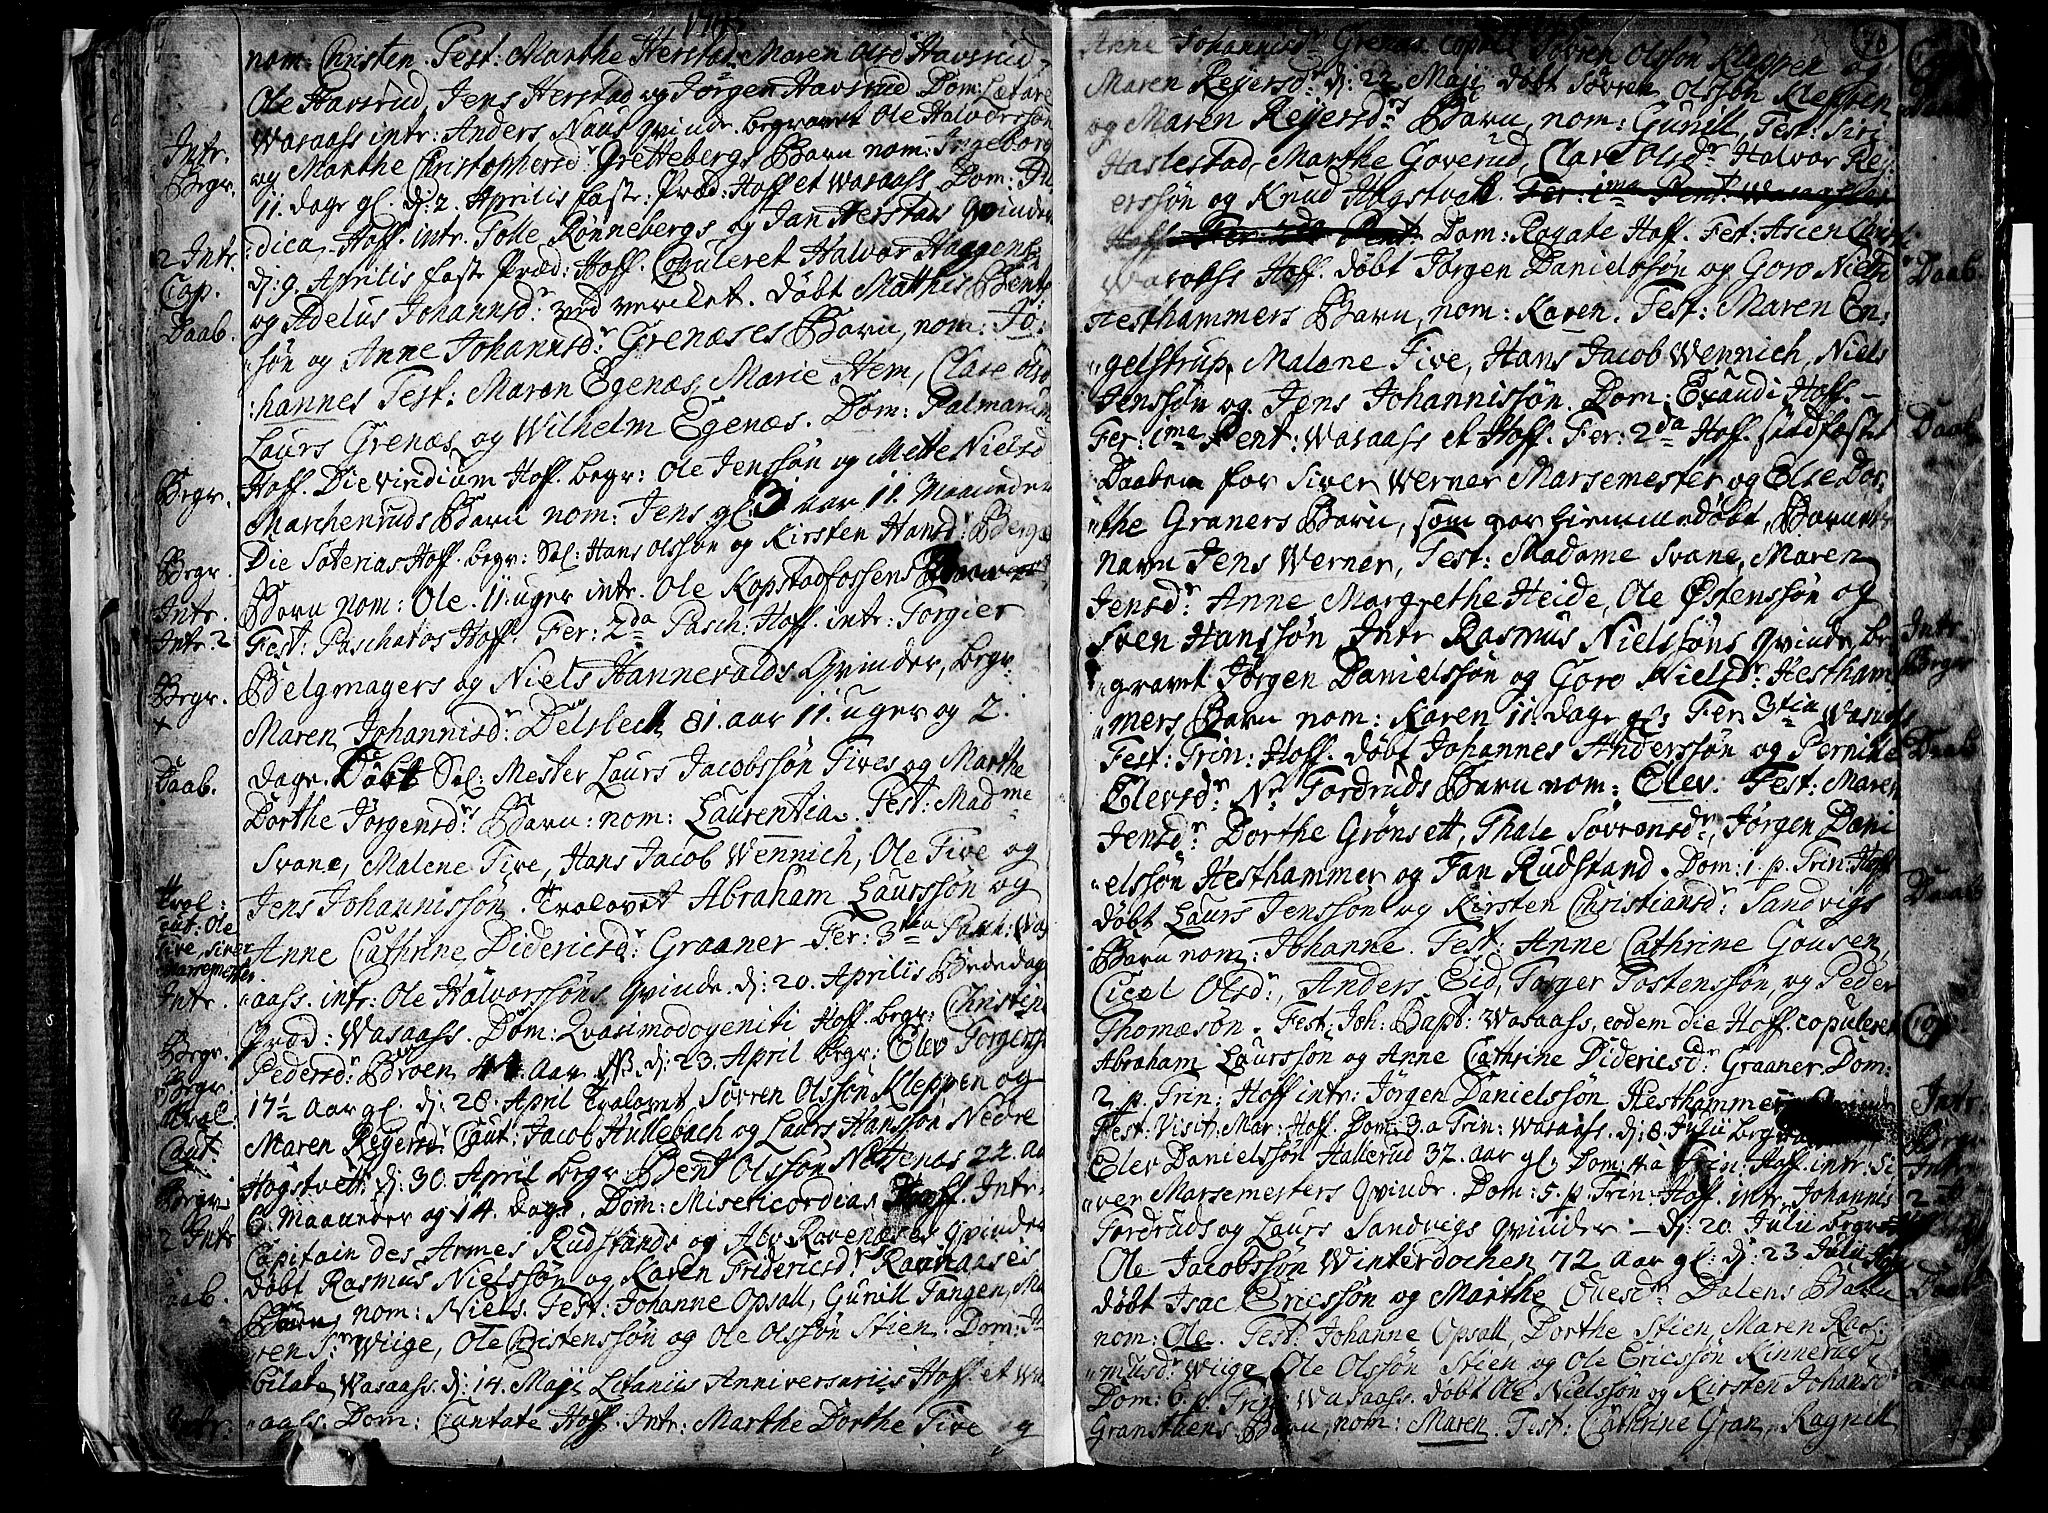 nom: Christen. Test: Marthe Herstad, Maren Olsd. Havsrud
Ole Havsrud, Jens Herstad og Jørgen Havsrud Dom: Lætare
Intr. Wasaass intr: Anders Nauf qvinde. begravet Ole Halvorssøn
Begr. og Marthe Christophersd: Grettebergs Barn nom: Ingeborg
11. dage gl. d: 2. Aprilis faste Præd: Hoff et Wasaass. Dom: Iu
2 Intr. dica, Hoff. intr. Tolle Rønnebergs og Jan Herstads Qvinder
Cop. d: 9. Aprilis faste Præd: Hoff. Copuleret Halvor Haagens
Daab. og Adelus Johannsdr: ved verchet. døbt Mathis Bent
søn og Anne Johannsdr Grenæses Barn, nom: Jo:
:hannes Test: Maren Egenæs, Marie Hem, Clare Olsd
Laurs Grenæs og Wilhelm Egenæs. Dom: Palmarum
Begr. Hoff. Die viridium Hoff. begr: Ole Jenssøn og Mette Nielsd
Marchenruds Barn nom: Jens gl: 3 aar 11. Maaneder
Begr. Die Soterias Hoff. begr: Sal: Hans Olssøn og Kirsten Hansd:
Intr. Barn nom: Ole. 11. uger intr. Ole Kopstadfossens
Intr. 2 Fest: Paschatos Hoff. Fer: 2da Pasch: Hoff. intr: Torgier
Begr. Belgmagers og Niels Hannevolds Qvinder, begr.
Maren Johannisdr: 81. aar 11. uger og 2.
Daab. dage. Døbt Sal: Mester Laurs Jacobssøn Fives og Marthe
Dorthe Jørgensdr: Barn: nom: Laurentia. Test: Madme
Svane, Malene Five, Hans Jacob Wennich, Ole Five og
Trol: Jens Johannissøn. Trolovet Abraham Laurssøn og
caut: Ole
Five, Siver
Marsemester. Anne Cathrine Didericsdr: Graaner. Fer: 3tia Pasch: Was
Intr. aass. intr: Ole Halvorssøns qvinde. d: 20. Aprilis Bededag
Begr. Præd: Wasaass. Dom: Qvasimodogeniti Hoff. begr: Christine
Begr. Pedersdr: Broen 44. aar NB. d: 23. April begr: Elev Torgiers
Trol: 17½ aar gl. d: 28. April Trolovet Søvren Olssøn Kleppen og
Caut. Maren Reyersdr Caut: Jacob Hullebach og Laurs Hanssøn Nedre
Begr. Hogstvett. d: 30. April begr: Bent Olssøn 22. aar
6. Maaneder og 14. dage. Dom: Misericordias Hoff. Intr.
2 Intr Capitain des Armes Rudstands og Alv Ravnæses qvinder
Daab. døbt Rasmus Nielssøn og Karen Fridericsdr Ravnaaseis
Barn, nom: Niels. Test: Johanne Opsall, Gunill Tangen, Ma
ren Wiige, Ole Christenssøn og Ole Olssøn Stien. Dom: Ju
bilate, Wasaass. d: 14. Maji Litaniis Anniversariis Hoff. et Wa
Intr: aass. Dom: Cantate Hoff. Intr: Marthe Dorthe Five og
76
Anne Johannisdr Grenæs copul: Søvren Olssøn Kleppen og
Maren Reyersdr: d: 22. Maji døbt Søvren Olssøn Kleppen
og Maren Reyersdrs Barn, nom: Gunill, Test: Siri
Haslestad, Marthe Goverud, Clare Olsdr Halvor Rey
erssøn og Knud Hogstvett. Fer: 1ma Pent: Wasaass
Hoff Fer: 2da Pent: Dom: Rogate Hoff. Fest: Ascen Christi
Wasaass Hoff. døbt Jørgen Danielssøn og Goro Nielsdr Daab
Hesthammers Barn, nom: Karen. Test: Maren En:
gelstrup, Malene Five, Hans Jacob Wennich, Niels
Jenssøn og Jens Johannissøn. Dom: Exaudi Hoff.
Fer: 1ma Pent: Wasaass et Hoff. Fer: 2da Hoff. stadfæstet Daab
Daaben for Siver Werner Marsemester og Else Dor:
the Graners Barn, som var hiemmedøbt, Barnets
navn Jens Werner, Test: Madame Svane, Maren
Jensdr: Anne Margrethe Heide, Ole Østenssøn og
Sven Hanssøn, Intr Rasmus Nielssøns qvinde, be Intr.
gravet Jørgen Danielssøn og Goro Nielsdr. Hestham Begr
mers Barn nom: Karen 11. dage gl: Fer: 3tia Wasaass
Fest: Trin: Hoff. døbt Johannes Anderssøn og Pernille Daab
Elevsdr: Nr. Fordruds Barn nom: Elev. Test: Maren
Jensdr Dorthe Grønsett, Thale Sovrensdr, Jørgen Dani
elssøn Hesthammer og Jan Rudstand. Dom: 1. p. Trin: Hoff
døbt Laurs Jenssøn og Kirsten Christiansdr: Sandvigs Daab
Barn nom: Johanne. Test: Anne Cathrine Gousen,
Cicel Olsdr:, Anders Eid, Torger Tostenssøn, og Peder
Thomæsøn. Fest: Joh: Bapt: Wasaass, eodem die Hoff. copuleret Cop:
Abraham Laurssøn og Anne Cathrine Didericsdr: Graaner. Dom:
2. p. Trin: Hoff intr: Jørgen Danielssøn Hesthammers Intr:
Fest: Visit: Mar: Hoff. Dom: 3. a Trin: Wasaass. d: 8. Julii begr Begr
Elev Danielssøn Hallerud 37. aar gl: Dom: 4 a Trin: Hoff. intr: Si Intr
ver Marsemesters qvinde. Dom: 5. p. Trin: Hoff. intr. Johannis 2
Fordruds og Laurs Sandvigs qvinder — d: 20. Julii begr
Ole Jacobssøn Winterdochen 72 aar gl: d: 23 Julii Hoff
døbt Isac Ericssøn og Marthe Ouesdr Dalens Barn Daab
nom: Ole. Test: Johanne Opsall, Dorthe Stien, Maren Ras:
musdr Wiige, Ole Olssøn Stien og Ole Ericssøn Kinnerud
Dom: 6. p. Trin Wasaass. døbt Ole Nielssøn og Kirsten Johansdr
Granstuens Barn, nom: Maren. Test: Cathrine Gran, Ragnill